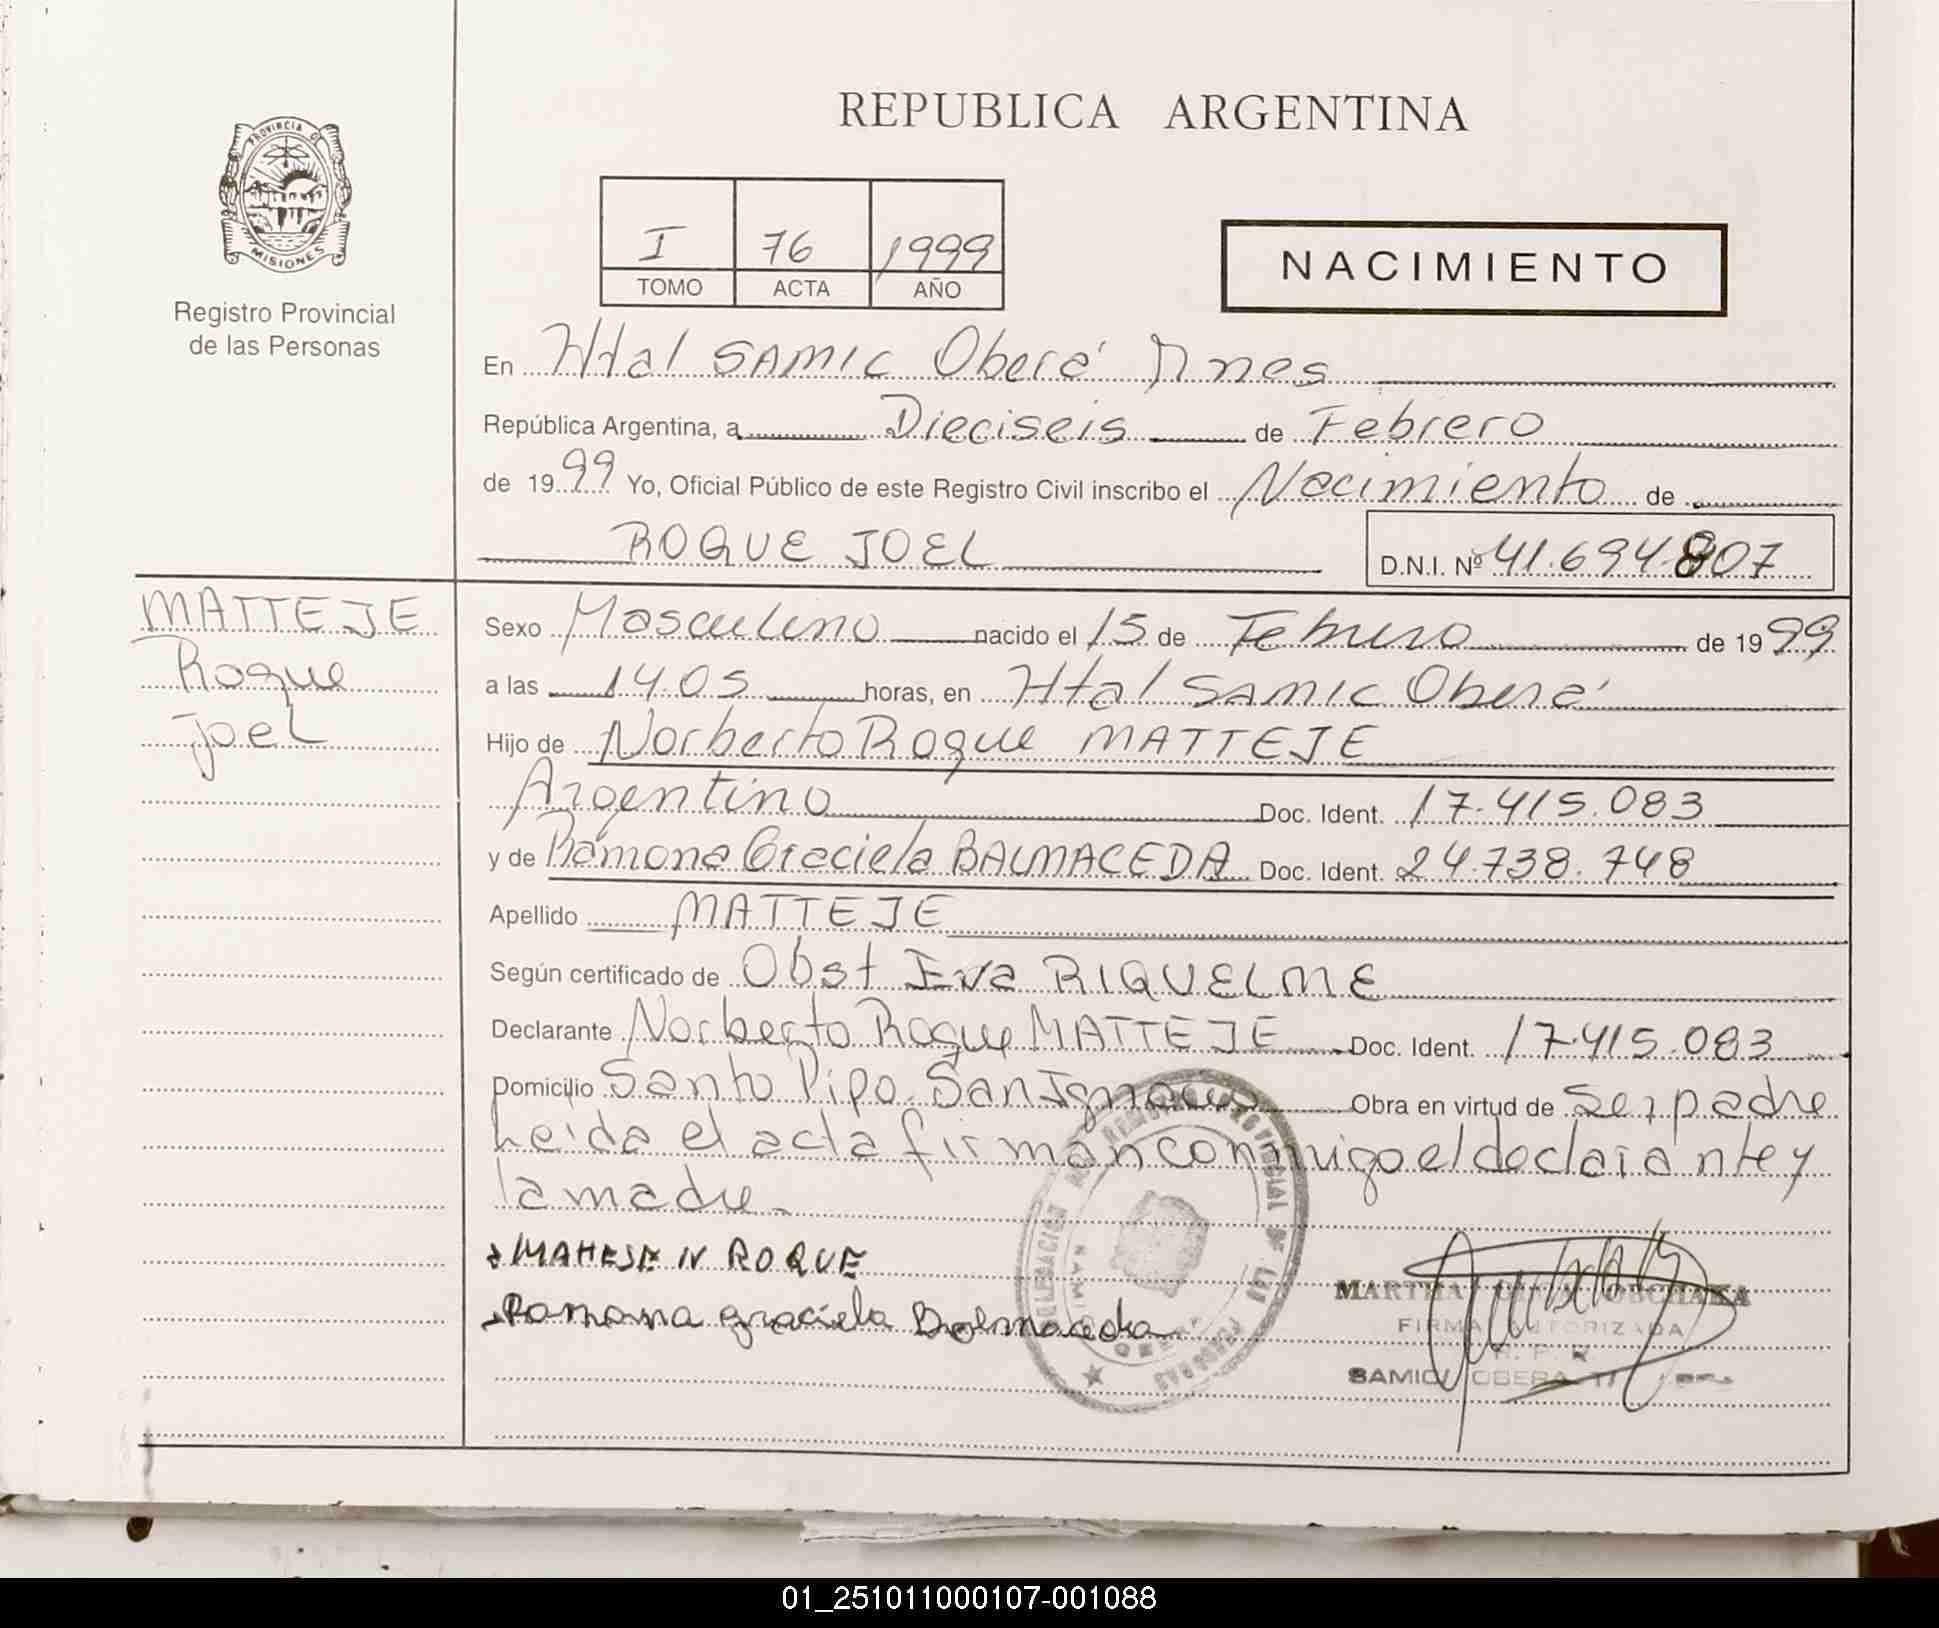 REPUBLICA ARGENTINA
PROVINCIA D
MISIONES
Registro Provincial
de las Personas
I 76 1999
TOMO ACTA AÑO
NACIMIENTO
En Htal SAMIC Oberá Mnes
República Argentina, a Dieciseis de Febrero
de 1999 Yo, Oficial Público de este Registro Civil inscribo el Nacimiento de
ROQUE JOEL D.N.I. Nº 41.694.807
MATTEJE
Roque
Joel
Sexo Masculino nacido el 15 de Febrero de 1999
a las 14.05 horas, en Htal SAMIC Oberá
Hijo de Norberto Roque MATTEJE
Argentino Doc. Ident. 17.415.083
y de Ramona Graciela BALMACEDA Doc. Ident. 24.738.748
Apellido MATTEJE
Según certificado de Obst Eva RIQUELME
Declarante Norberto Roque MATTEJE Doc. Ident. 17.415.083
Domicilio Santo Pipo. San Ignacio Obra en virtud de Ser padre
Leida el acta firman conmigo el declarante y
la madre.
MATTEJE N ROQUE
Ramona graciela Balmaceda
DELEGACION PROVINCIAL DE LAS PERSONAS
MARTHA
FIRMA AUTORIZADA
R. P.
SAMIC OBERA
01_251011000107-001088